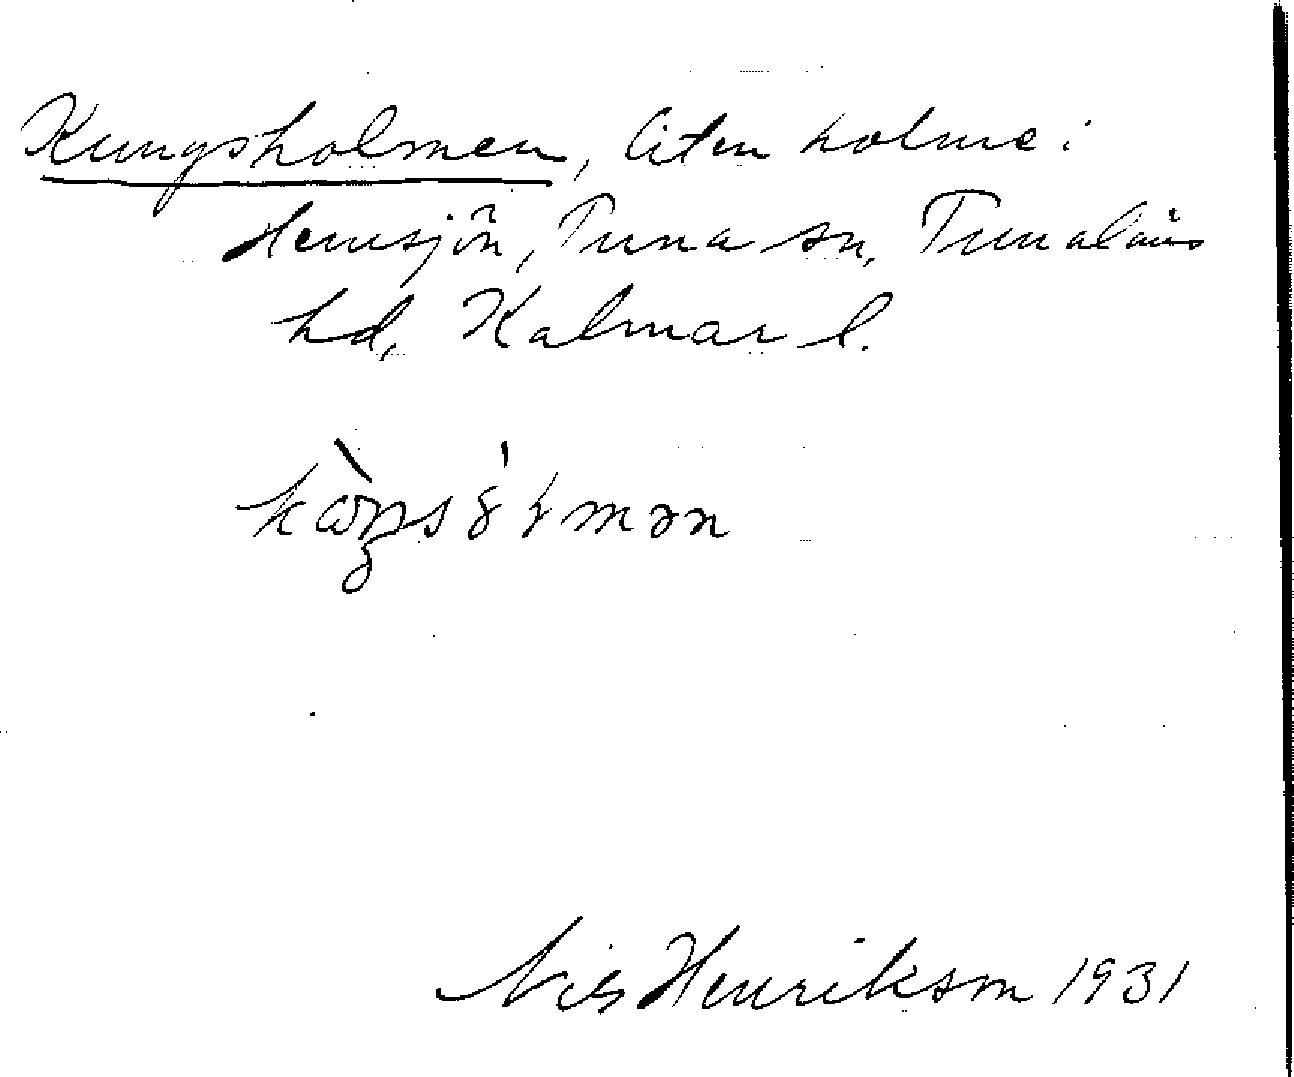 Kungsholmen, liten holme i
Hemsjön, Tuna sn, Tunaläns
hd, Kalmar l.
Nils Henrikson 1931